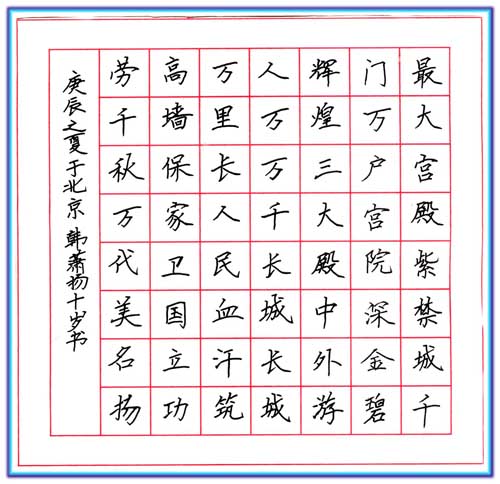 最大宫殿紫禁城千
门万户宫院深金碧
辉煌三大殿中外游
人万万千长城长城
万里长人民血汗筑
高墙保家卫国立功
劳千秋万代美名扬
庚辰之夏于北京韩萧扬十岁书